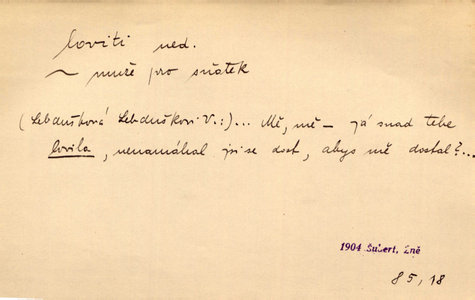 loviti ned.
~ muže pro sňatek
(Lebdušková Lebduškovi V.:)... Mě, mě – já snad tebe
lovila, nenamáhal jsi se dost, abys mě dostal?...
1904 Šubert, Žně
85, 18